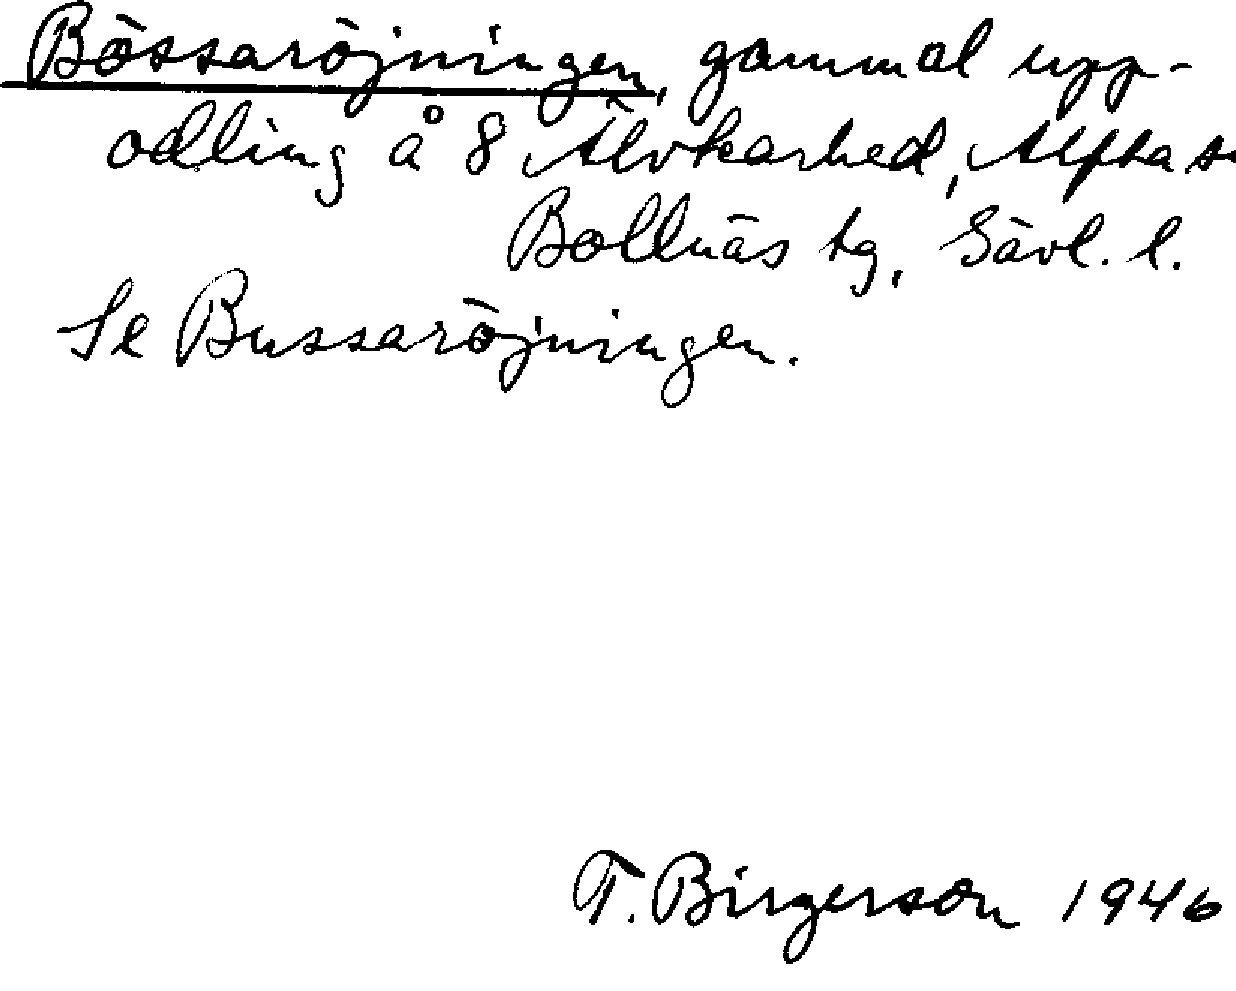 Bössaröjningen, gammal upp-
odling å 8 Älvkarhed, Alfta s.
Bollnäs tg, Gävl. l.
Se Bussaröjningen.
T. Birgerson 1946